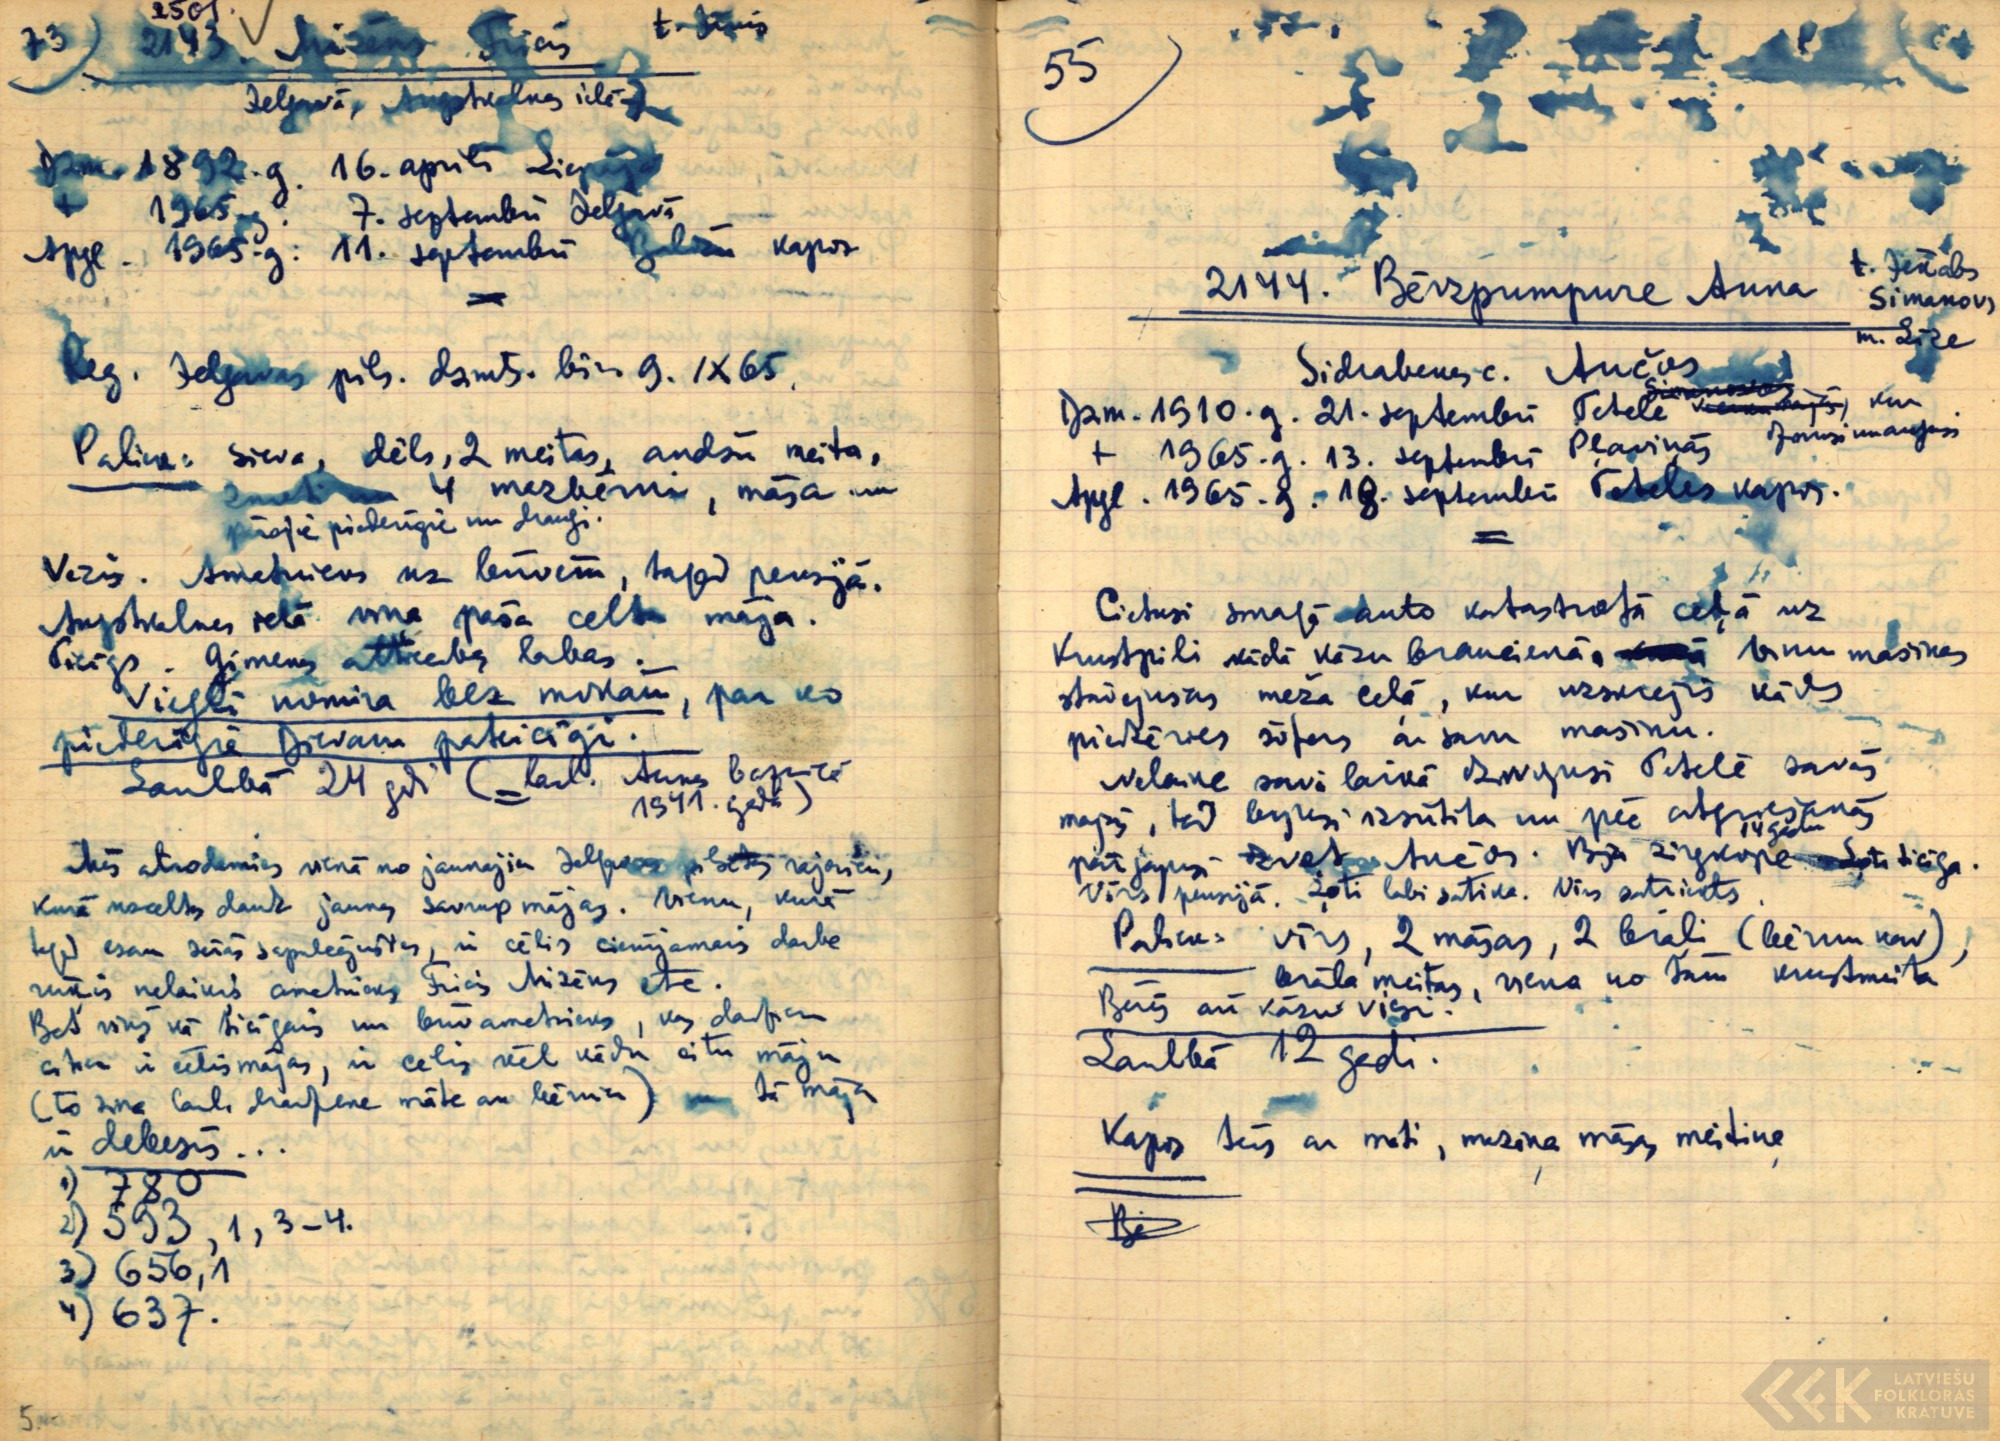 2501.
73) 2143. Mizēns Fricis t. Jānis
Jelgavā, Augstkalnes ielā 7
Dzm. 1892.g. 16. aprīlī Liepājā
+ 1965.g. 7. septembrī Jelgavā
Apgl. 1965.g. 11. septembrī kapos
=
Reg. Jelgavas pils. dzmts. bir. 9. IX 65.
Paliek: sieva, dēls, 2 meitas, audžu meita,
4 mazbērni, māsa un
pārējie piederīgie un draugi.
Vēzis. Amatnieks uz būvēm, tagad pensijā.
Augstkalnes ielā viņa paša celta māja.
Ticīgs. Ģimenes attiecības labas.
Viegli nomira bez mokām, par ko
piederīgie Dievam pateicīgi.
Laulībā 24 gadi (= laul. Annas baznīcā
1941. gadā)
Mēs atrodamies vienā no jaunajiem Jelgavas pilsētas rajoniem,
kurā uzceltas daudz jaunas savrupmājas. Vienu, kurā
tagad esam sērās sapulcējušies, ir cēlis cienījamais darba
rūķis nelaiķis amatnieks Fricis Mizēns etc.
Bet viņš kā ticīgais un būvamatnieks, kas daudziem
citiem ir cēlis mājas, ir cēlis vēl kādu citu māju
(to zina laul. draudzene māte ar bērniem) tā māja
ir debesīs...
1) 780
2) 593, 1, 3–4.
3) 656, 1
4) 637.
5.
55)
2144. Bērzpumpure Anna t. Jēkabs
Simanovs
m. Līze
Sidrabenes c. Ančos
Dzm. 1910.g. 21. septembrī Tetelē kur
dzimusi un augusi
+ 1965.g. 13. septembrī Pļaviņās
Apgl. 1965.g. 18. septembrī Teteles kapos.
=
Cietusi smagā auto katastrofā ceļā uz
Krustpili kādā kāzu braucienā, viņu mašīnas
stāvējušas meža ceļā, kur uzskrējis kāds
piedzēries šofers ar savu mašīnu.
Nelaiķe savā laikā dzīvojusi Tetelē savās
mājās, tad bijusi izsūtīta un pēc atgriešanās
14 gadu
pārgājusi dzīvot Ančos. Bija zirgkope Ļoti ticīga.
Vīrs pensijā. Ļoti labi satika. Vīrs satriekts.
Paliek: vīrs, 2 māsas, 2 brāļi (bērnu nav),
brāļa meitas, viena no tām krustmeita
Bērēs arī kāzu viesi.
Laulībā 12 gadi.
Kapos tēvs ar māti, maziņa māsas meitiņa
LATVIEŠU
FOLKLORAS
KRATUVE